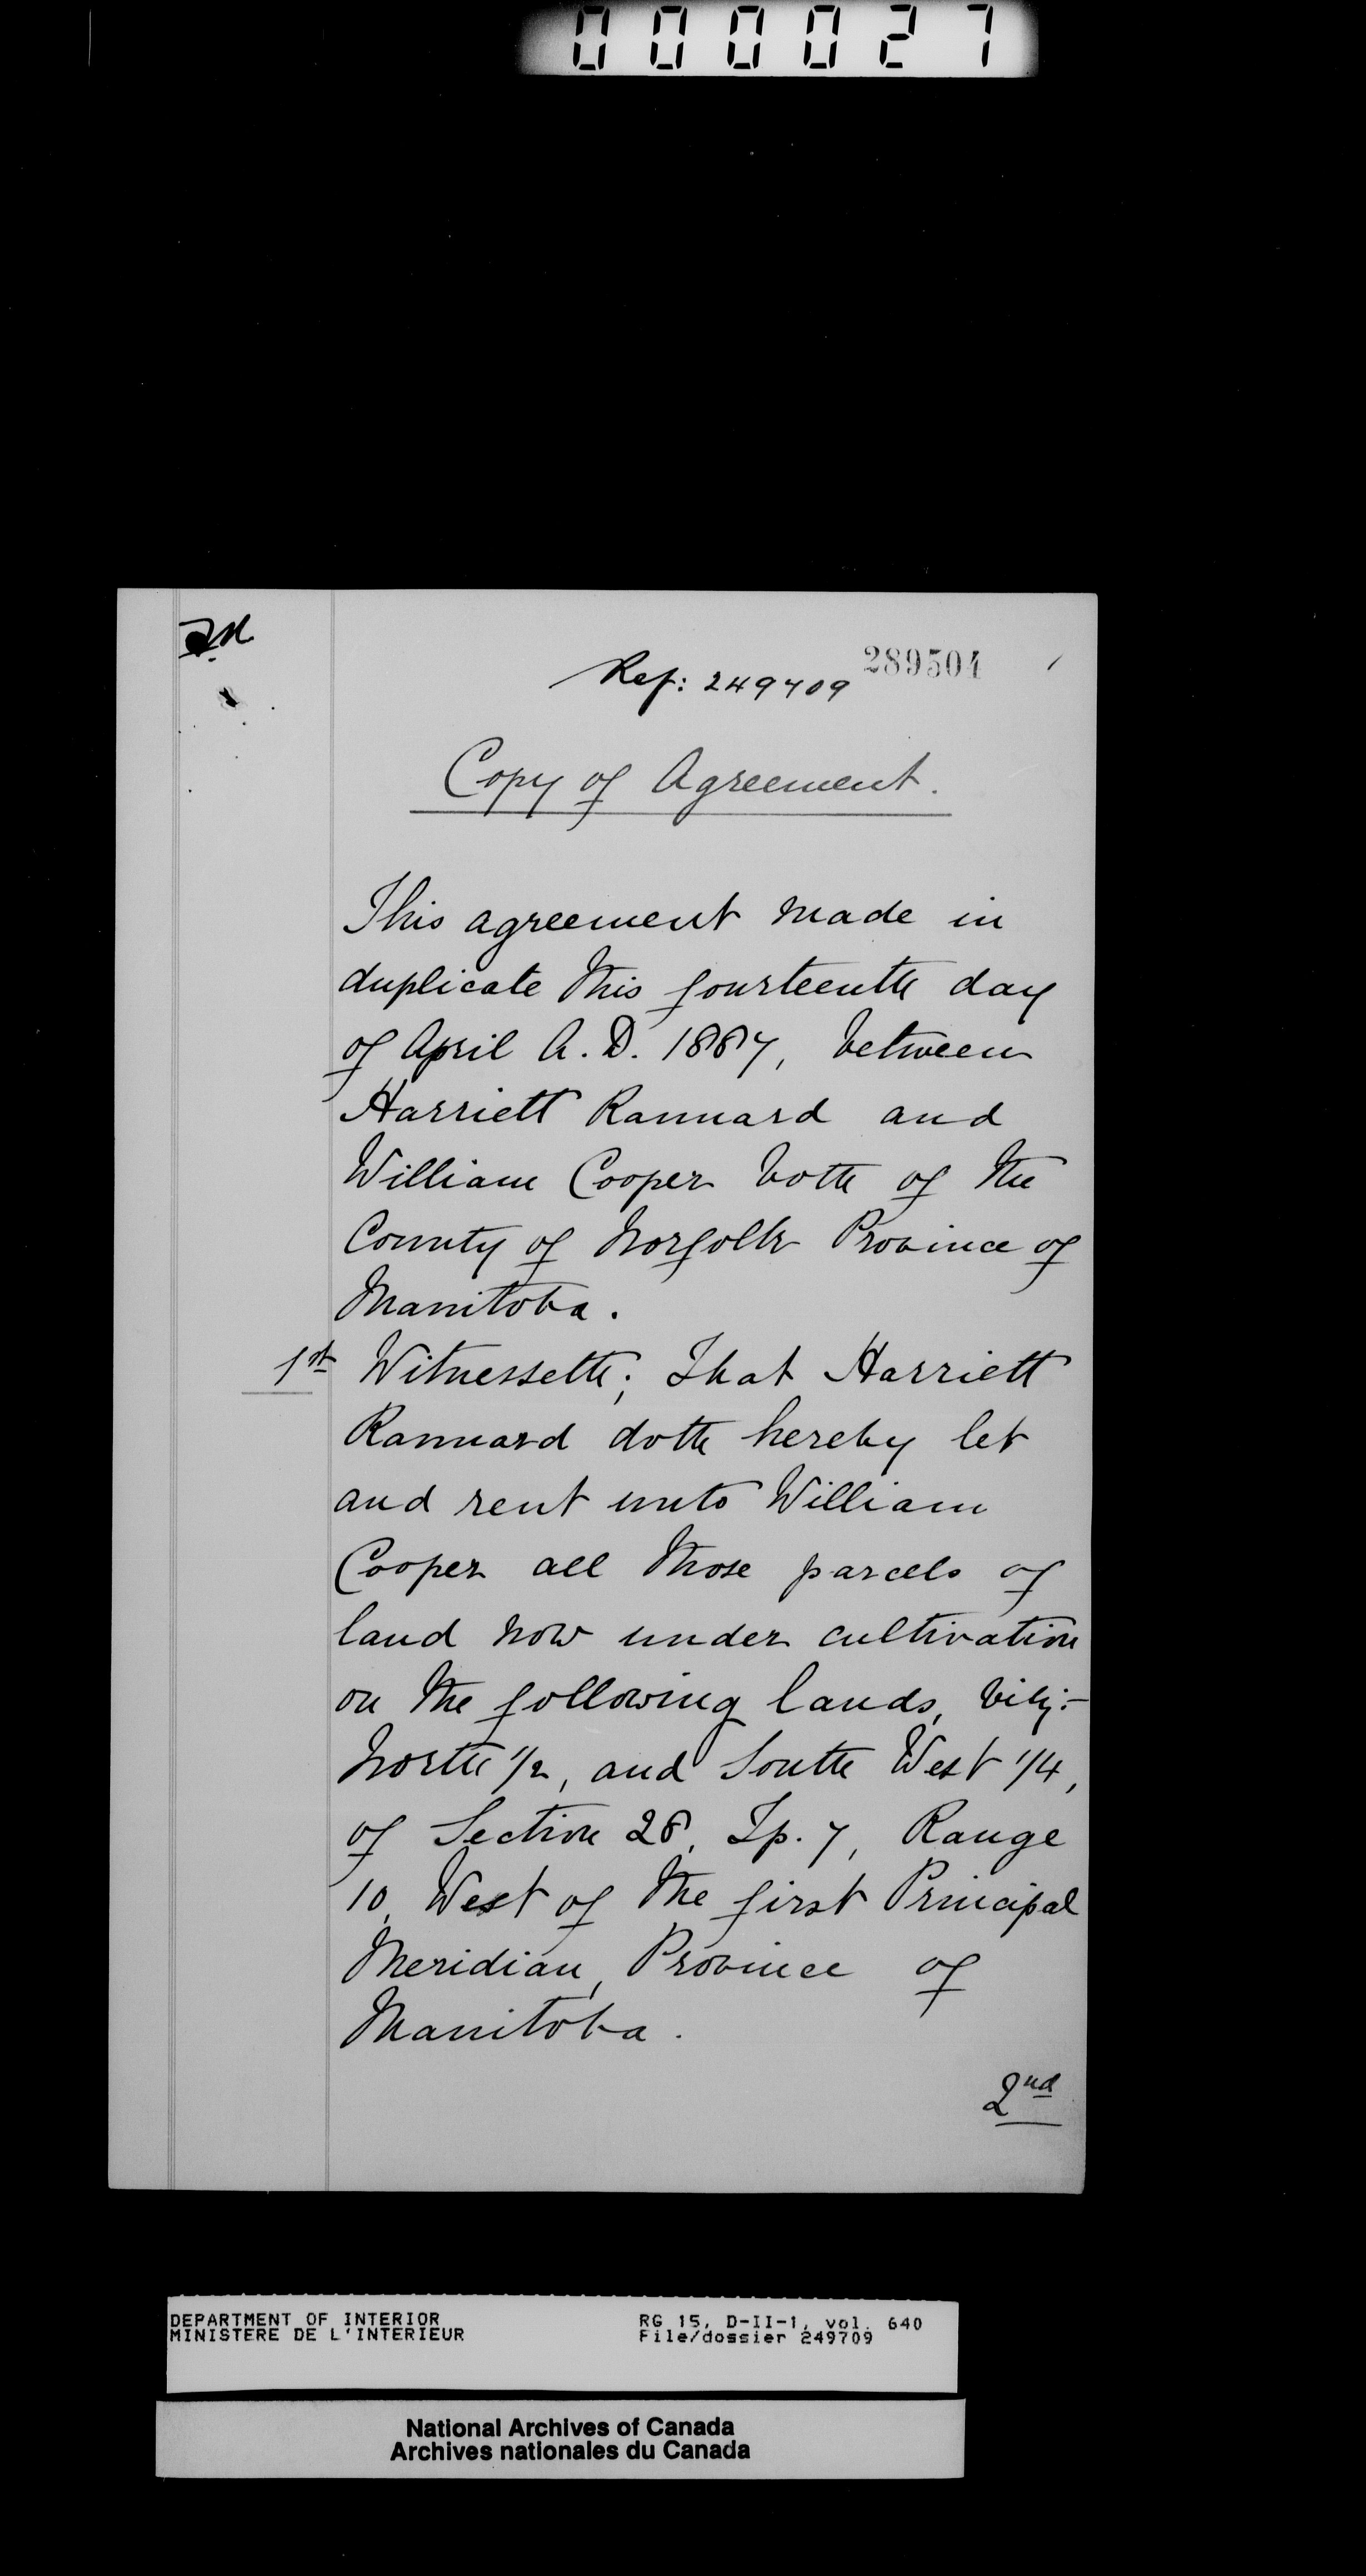 000027
289504
Ref: 249709
Copy of Agreement.
This agreement made in
duplicate this fourteenth day
of April A.D. 1887, between
Harriett Rannard and
William Cooper both of the
County of Norfolk Province of
Manitoba.
1st Witnesseth; That Harriett
Rannard doth hereby let
and rent unto William
Cooper all those parcels of
land now under cultivation
on the following lands, viz:-
North 1/2, and South West 1/4,
of Section 28, Tp. 7, Range
10, West of the first Principal
Meridian, Province of
Manitoba.
2nd
DEPARTMENT OF INTERIOR RG 15, D-II-1, vol. 640
MINISTERE DE L'INTERIEUR File/dossier 249709
National Archives of Canada
Archives nationales du Canada